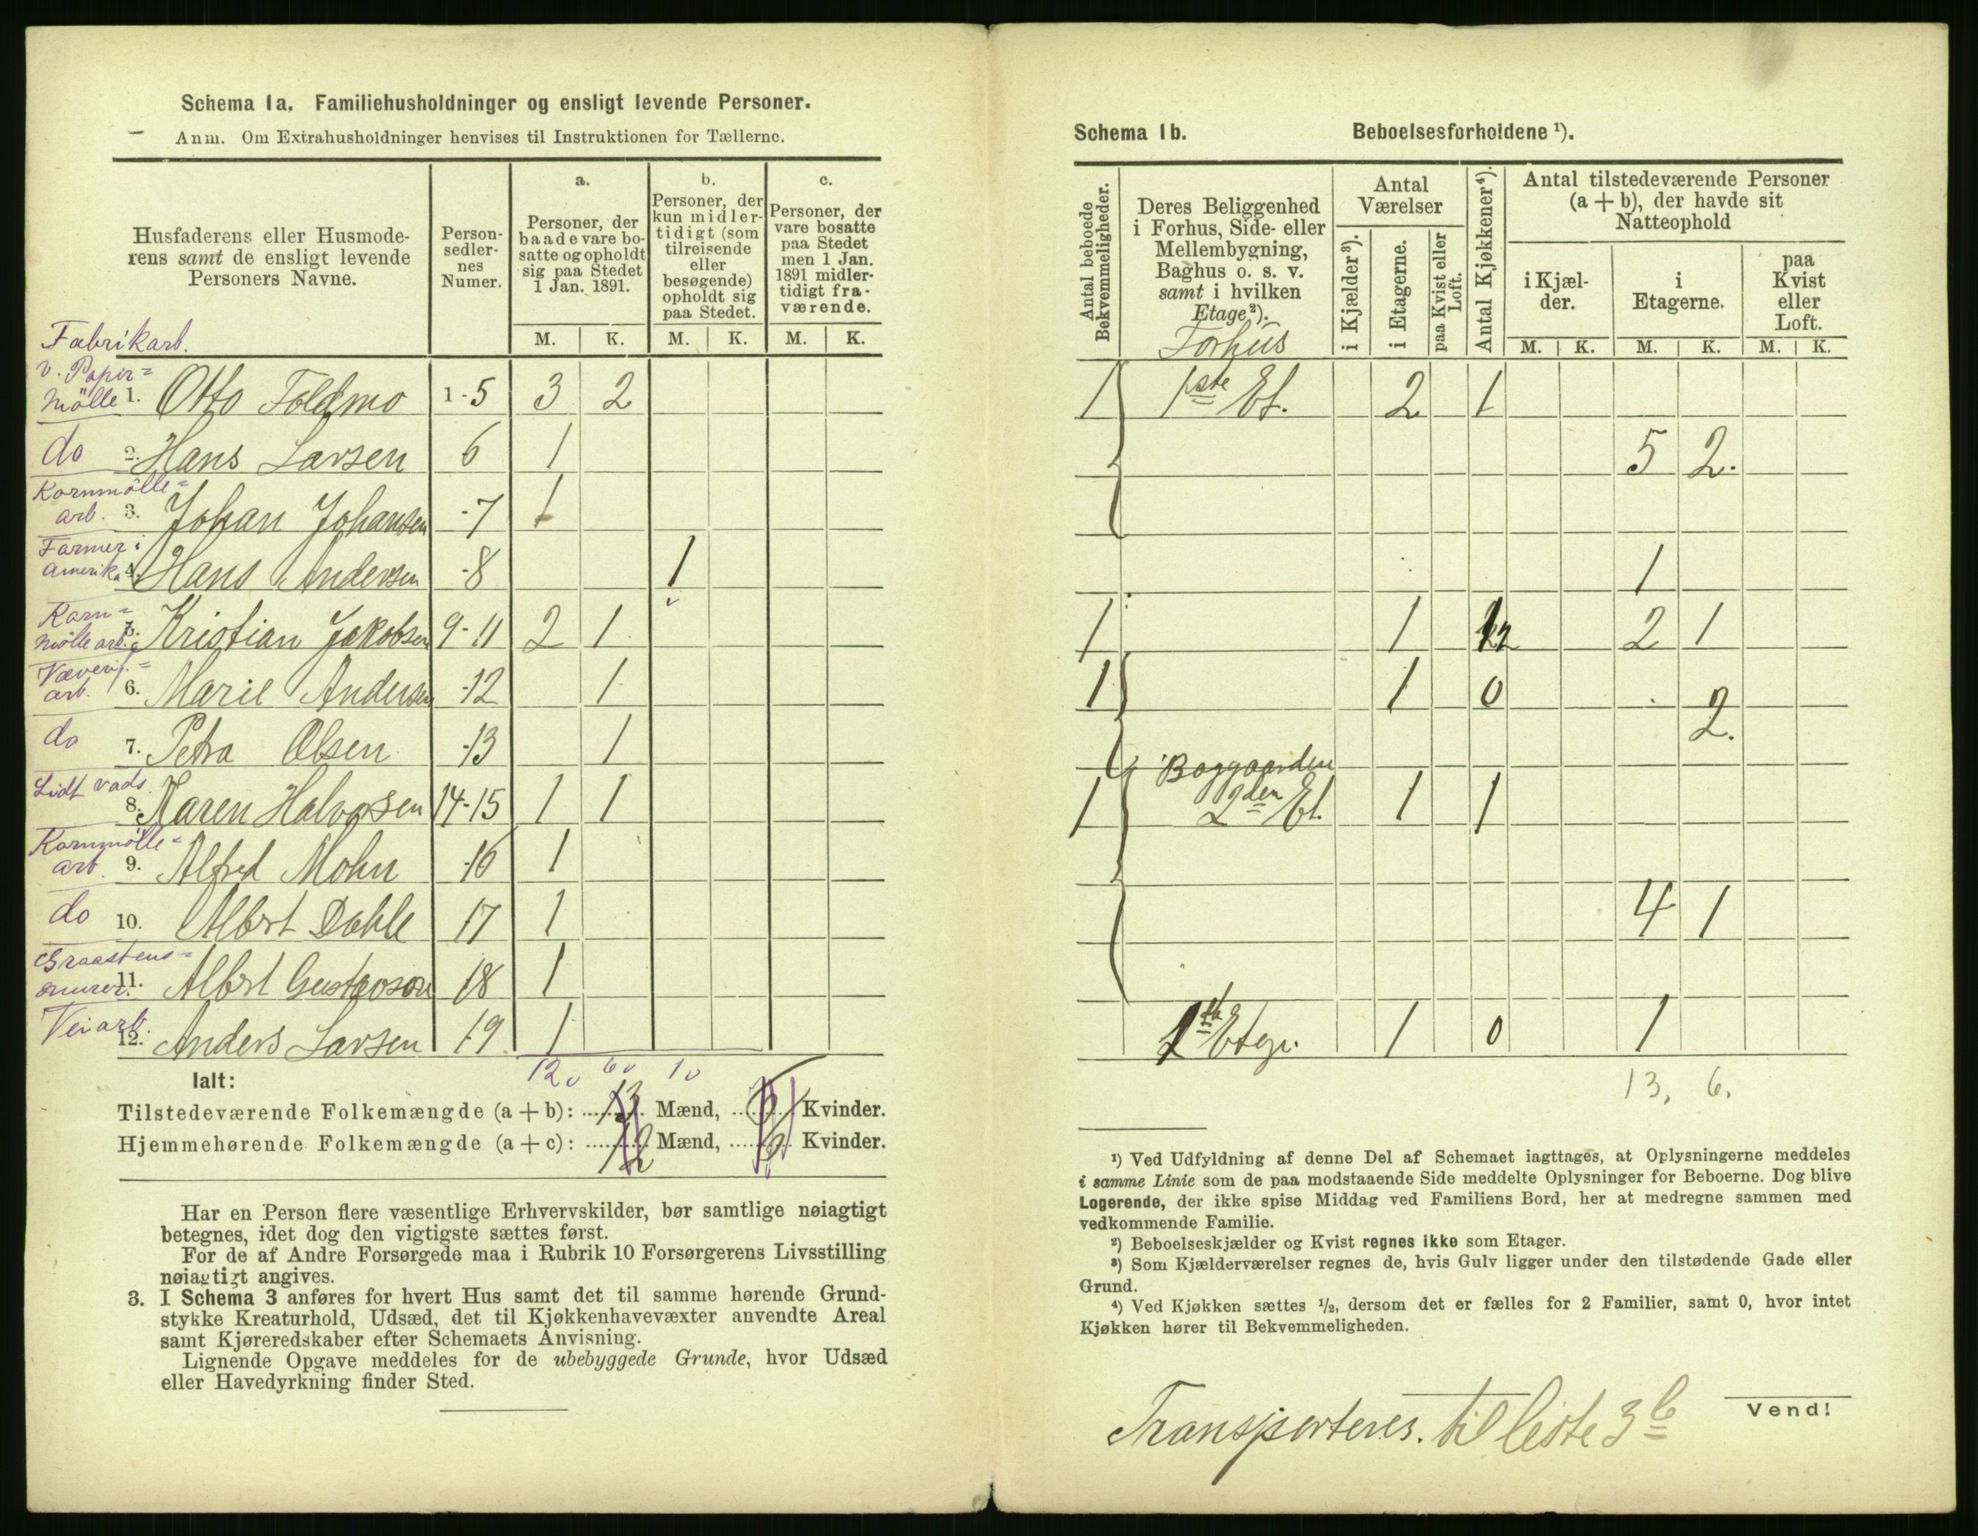 Schema 1a. Familiehusholdninger og ensligt levende Personer.
Anm. Om Extrahusholdninger henvises til Instruktionen for Tællerne.
Husfaderens eller Husmode-
rens samt de ensligt levende
Personers Navne.
Person-
sedler-
nes
Numer.
a.
Personer, der
baade vare bo-
satte og opholdt
sig paa Stedet
1 Jan. 1891.
b.
Personer, der
kun midler-
tidigt (som
tilreisende
eller
besøgende)
opholdt sig
paa Stedet.
c.
Personer, der
vare bosatte
paa Stedet
men 1 Jan.
1891 midler-
tidigt fra-
værende.
M. K. M. K. M. K.
Fabrikarb.
v. Papir=
mölle 1. Otto Foldmo 1-5 3 2
do 2. Hans Larsen 6 1
Kornmölle=
arb. 3. Johan Johansen -7 1
Farmer i
Amerika 4. Hans Andersen -8 1
Korn=
mölle arb. 5. Kristian Jakobsen 9-11 2 1
Væveri=
arb. 6. Marie Andersen -12 1
do 7. Petra Olsen -13 1
Lidt vads.
8. Karen Halvorsen 14-15 1 1
Kornmölle=
arb. 9. Alfred Mohn -16 1
do 10. Albert Dahle 17 1
Graastens=
murer. 11. Albert Gustavson 18 1
Veiarb. 12. Anders Larsen 19 1
12 6 1
Ialt:
Tilstedeværende Folkemængde (a+b): 13 Mænd, 6 Kvinder.
Hjemmehørende Folkemængde (a+c): 12 Mænd, 6 Kvinder.
Har en Person flere væsentlige Erhvervskilder, bør samtlige nøiagtigt
betegnes, idet dog den vigtigste sættes først.
For de af Andre Forsørgede maa i Rubrik 10 Forsørgerens Livsstilling
nøiagtigt angives.
3. I Schema 3 anføres for hvert Hus samt det til samme hørende Grund-
stykke Kreaturhold, Udsæd, det til Kjøkkenhavevæxter anvendte Areal
samt Kjøreredskaber efter Schemaets Anvisning.
Lignende Opgave meddeles for de ubebyggede Grunde, hvor Udsæd
eller Havedyrkning finder Sted.
Schema 1b. Beboelsesforholdene ¹).
Antal beboede
Bekvemmeligheder.
Deres Beliggenhed
i Forhus, Side- eller
Mellembygning,
Baghus o. s. v.
samt i hvilken
Etage²).
Antal
Værelser
i Kjælder³).
i Etagerne.
paa Kvist eller
Loft.
Antal Kjøkkener⁴).
Antal tilstedeværende Personer
(a+b), der havde sit
Natteophold
i Kjæl-
der.
i
Etagerne.
paa
Kvist
eller
Loft.
M. K. M. K. M. K.
Forhus
1 1ste Et. 2 1
5 2.
1
1 1 2 1
1 1 0
2.
Baggaarden
1 2den Et. 1 1
4 1
Etage. 1 0 1
13, 6.
¹) Ved Udfyldning af denne Del af Schemaet iagttages, at Oplysningerne meddeles
i samme Linie som de paa modstaaende Side meddelte Oplysninger for Beboerne. Dog blive
Logerende, der ikke spise Middag ved Familiens Bord, her at medregne sammen med
vedkommende Familie.
²) Beboelseskjælder og Kvist regnes ikke som Etager.
³) Som Kjælderværelser regnes de, hvis Gulv ligger under den tilstødende Gade eller
Grund.
⁴) Ved Kjøkken sættes ½, dersom det er fælles for 2 Familier, samt 0, hvor intet
Kjøkken hører til Bekvemmeligheden.
Vend!
Transporteres. til liste 3 b